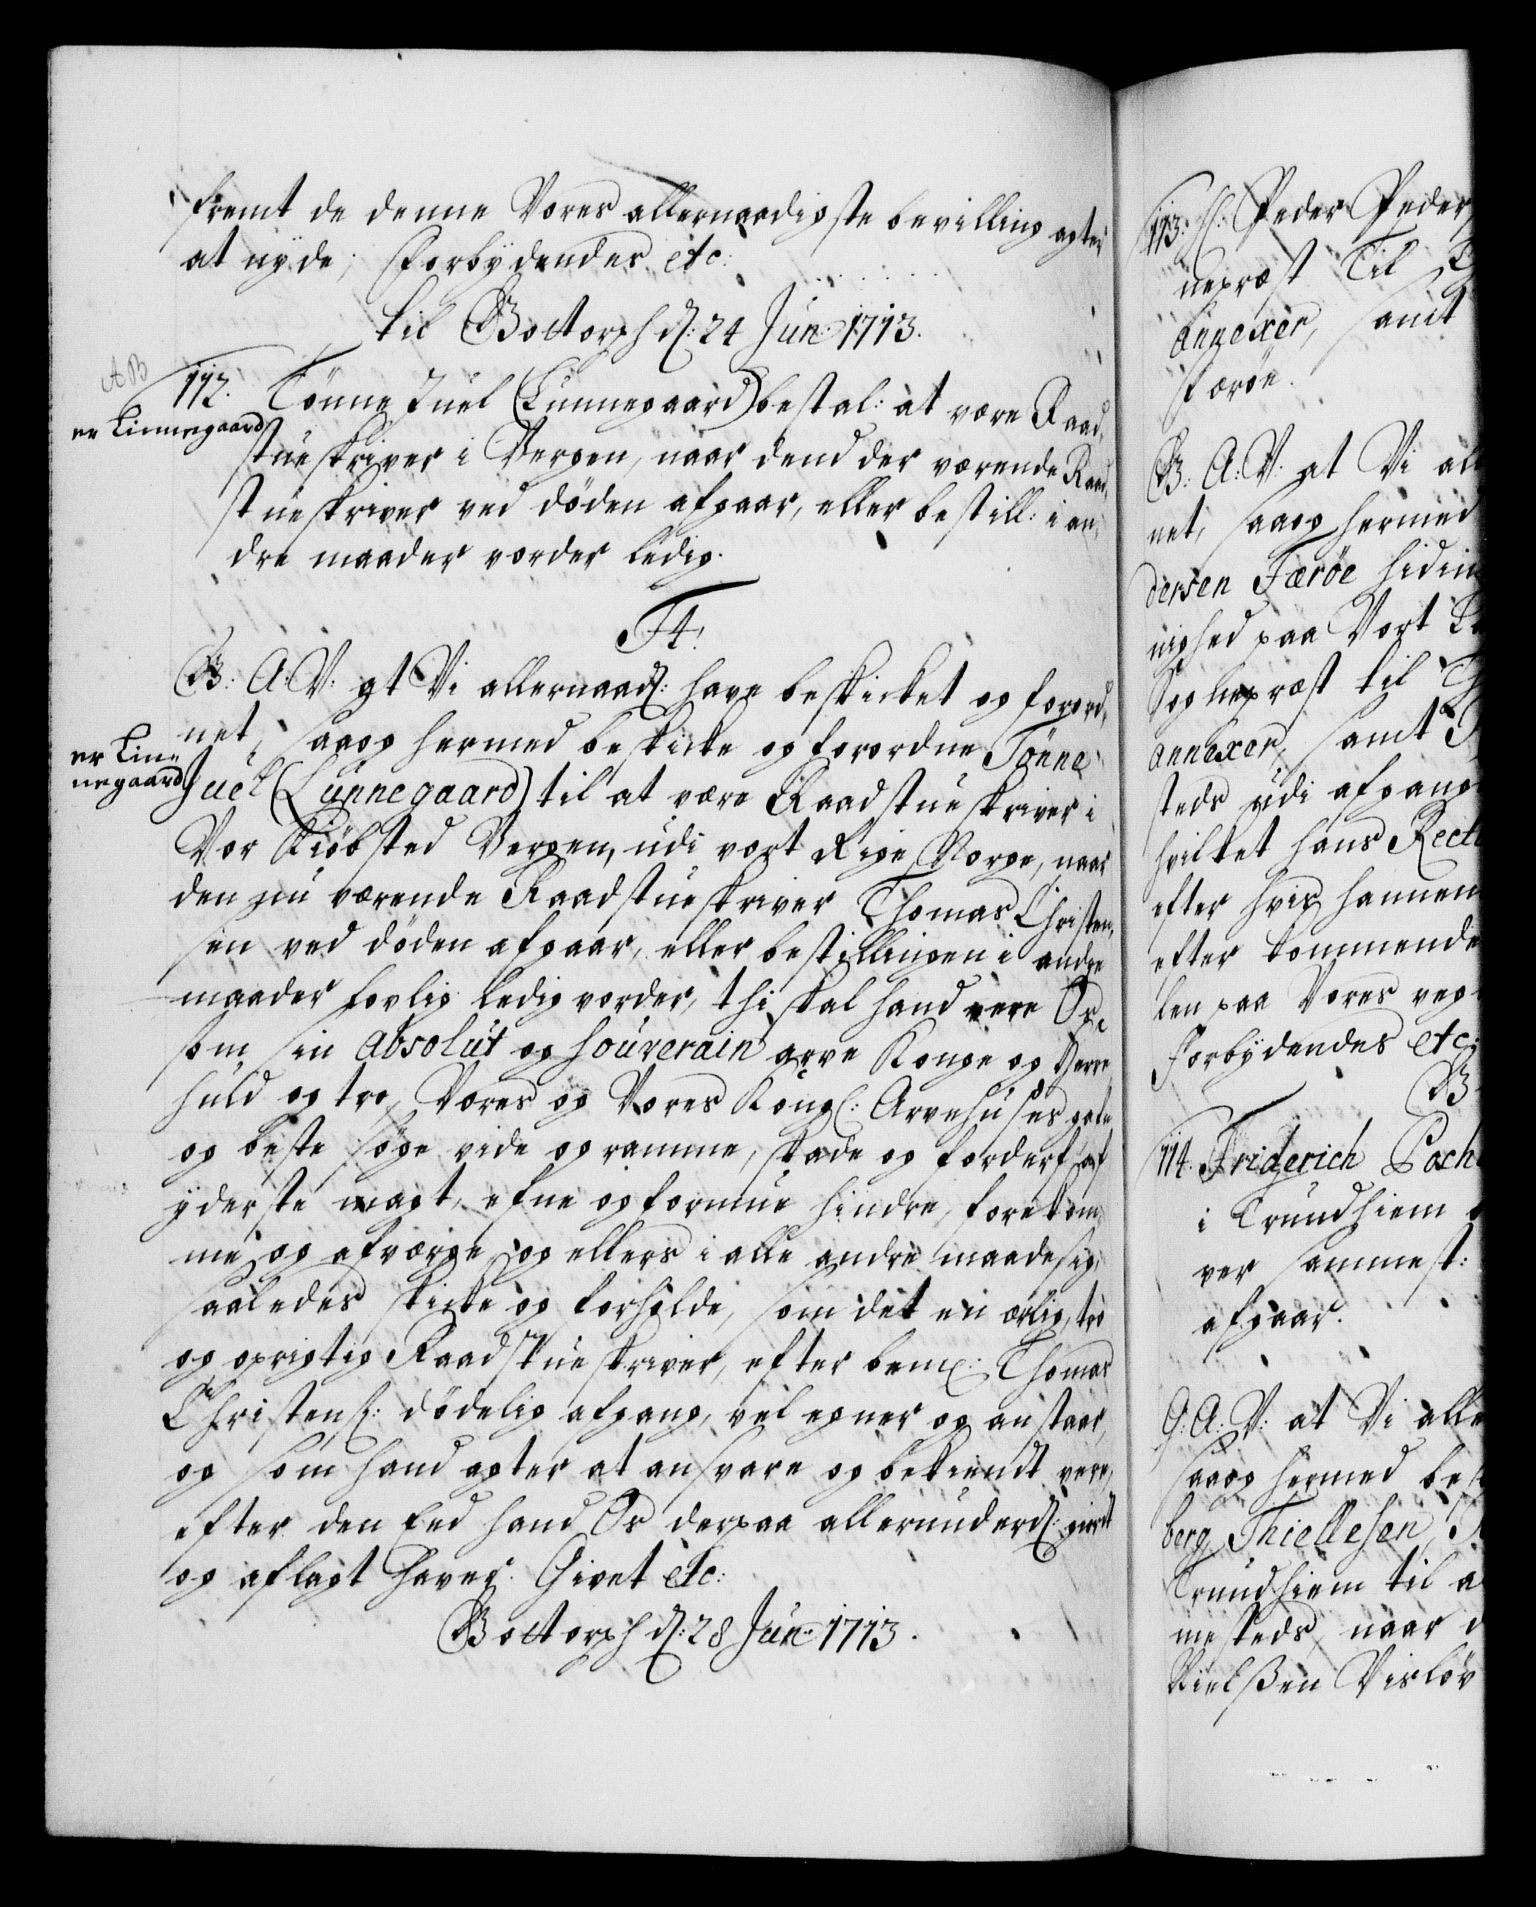 fremt de denne Vores allernaadigste bevilling agter
at nyde; Forbydendes etc:
til Gottorph d: 24 Jun: 1713.
AB
112. Tönne Juel (Lunnegaard) bestal: at være Raad-
er Linnegaard
stueskriver i Bergen, naar dend der værende Raad-
stueskriver ved döden afgaar, eller bestill: i an-
dre maader vorder ledig.
F4.
G: A: V: at Vi allernaad: have beskicket og forord-
net, saaog hermed beskicke og forordne Tönne
er Lin-
negaard
Juel (Lunnegaard) til at være Raadstueskriver i
Vor Kiöbsted Bergen, udi vort Rige Norge, naar
den nu værende Raadstueskriver Thomas Christen-
sen ved döden afgaar, eller bestillingen i andre
maader lovlig ledig vorder, thi skal hand være Os
som sin Absolut og Souverain arve Konge og Herre
huld og tro, Vores og Vores Kongl: Arvehuses gafn
og beste söge vide og ramme, skade og forderf af
yderste magt, efne og formue hindre, forekom-
me og afværge og ellers i alle andre maade sig
saaledes skicke og forholde, som det en ærlig, tro
og oprigtig Raadstueskriver, efter bem: Thomas
Christens: dödelig afgang, vel egner og anstaar,
og som hand agter at ansvare og bekiendt være,
efter den Eed hand Os derpaa allerunderd: giort
og aflagt haver. Givet etc:
Gottorph d: 28 Jun: 1713.
113. H: Peder Peder
nepræst til
Annexer, samt
Færöe.
G: A: V: at Vi al
net, saaog hermed
dersen Færöe hidin
nighed paa Vort
Sognepræst til
annexer, samt
steds udi afgang
hvilket hans Rect
efter hvis hannem
efter kommende
len paa Vores veg
Forbydendes etc:
G
114. Friderich Poch
i Trundhiem
ver sammest:
afgaar.
G: A: V: at Vi alle
saaog hermed bes
berg Thiellesen,
Trundhiem til a
mesteds, naar d
Nielsen Visløv